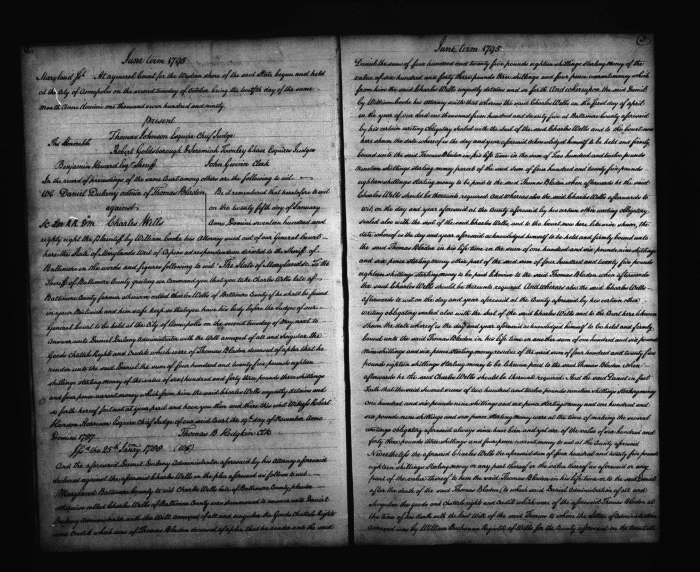 June term 1795
Maryland Ss. At a general Court for the Western shore of the said State begun and held
at the City of Annapolis on the second tuesday of October being the twelfth day of the same
month Anno Domini one thousand seven hundred and ninety
Present
Thomas Johnson Esquire Chief Judge
The Honorable
Robert Goldsborough & Jeremiah Townley Chase Esquires Judges
Benjamin Howard Esqr. Sheriff John Gwinn Clerk
In the record of proceedings of the same Court among others are the following to wit
Daniel Dulany of Thomas Bladen Be it remembered that heretofore to wit
against on the twenty fifth day of January
Charles Wells Anno Domini seventeen hundred and
eighty eight the plaintiff by William Cooke his Attorney sued out of our General Court
here the State of Maryland's Writ of Capias ad respondendum directed to the Sheriff of
Baltimore in the words and figures following to wit The State of Maryland to the
Sheriff of Baltimore County greeting we command you that you take Charles Wells late of
Baltimore County farmer otherwise called Charles Wells of Baltimore County if he shall be found
in your Bailiwick and him safe keep so that you have his body before the Judges of our
General Court to be held at the City of Annapolis on the second tuesday of May next to
answer unto Daniel Dulany administrator with the Will annexed of all and singular the
Goods Chattels Rights and Credits which were of Thomas Bladen deceased of a plea that he
render unto the said Daniel the sum of four hundred and twenty five pounds eighteen
shillings sterling money of the value of six hundred and forty three pounds three shillings
and four pence current money which from him the said Charles Wells unjustly detains and
so forth hereof fail not at your peril and have you then and there this writ Witness Robert
Hanson Harrison Esquire Chief Judge of our said Court the 19th day of November Anno
Domini 1787. Thomas B. Hodgkin Clk
Issd. the 25th Janry. 1788
And the aforesaid Daniel Dulany Administrator aforesaid by his attorney aforesaid
declared against the aforesaid Charles Wells in the plea aforesaid as follows to wit
Maryland Baltimore County to wit Charles Wells late of Baltimore County planter
otherwise called Charles Wells of Baltimore County was summoned to answer unto Daniel
Dulany Administrator with the Will annexed of all and singular the Goods Chattels Rights
and Credits which were of Thomas Bladen deceased of a plea that he render unto the said
June term 1795
Daniel the sum of four hundred and twenty five pounds eighteen shillings sterling money of the
value of six hundred and forty three pounds three shillings and four pence current money which
from him the said Charles Wells unjustly detains and so forth And whereupon the said Daniel
by William Cooke his attorney saith that whereas the said Charles Wells on the first day of april
in the year of our Lord one thousand seven hundred and seventy five at Baltimore County aforesaid
by his certain writing Obligatory sealed with the seal of the said Charles Wells and to the Court now
here shewn the date whereof is the day and year aforesaid acknowledged himself to be held and firmly
bound unto the said Thomas Bladen in his life time in the sum of two hundred and twelve pounds
nineteen shillings sterling money parcel of the said sum of four hundred and twenty five pounds
eighteen shillings sterling money to be paid to the said Thomas Bladen when afterwards he the said
Charles Wells should be thereunto required And whereas also the said Charles Wells afterwards to
wit on the day and year aforesaid at the County aforesaid by his certain other writing obligatory
sealed also with the seal of the said Charles Wells, and to the Court now here likewise shewn, the
date whereof is the day and year aforesaid acknowledged himself to be held and firmly bound unto
the said Thomas Bladen in his life time in the sum of one hundred and six pounds nine shillings
and six pence sterling money other part of the said sum of four hundred and twenty five pounds
eighteen shillings sterling money to be paid likewise to the said Thomas Bladen when afterwards
he the said Charles Wells should be thereunto required And whereas also the said Charles Wells
afterwards to wit on the day and year aforesaid at the County aforesaid by his certain other
writing obligatory sealed also with the seal of the said Charles Wells and to the Court here likewise
shewn the date whereof is the day and year aforesaid acknowledged himself to be held and firmly
bound unto the said Thomas Bladen in his life time in another sum of one hundred and six pounds
nine shillings and six pence sterling money residue of the said sum of four hundred and twenty five
pounds eighteen shillings sterling money to be likewise paid to the said Thomas Bladen when
afterwards he the said Charles Wells should be thereunto required Yet the said Daniel in fact
saith that the said several sums of two hundred and twelve pounds nineteen shillings sterling money
one hundred and six pounds nine shillings and six pence sterling money and one hundred and
six pounds nine shillings and six pence sterling money were at the time of making the several
writings obligatory aforesaid always since have been and yet are of the value of six hundred and
forty three pounds three shillings and four pence current money to wit at the County aforesaid
Nevertheless the aforesaid Charles Wells the aforesaid sum of four hundred and twenty five pounds
eighteen shillings sterling money or any part thereof or the value thereof as aforesaid or any
part of the value thereof to him the said Thomas Bladen in his life time or to the said Daniel
after the death of the said Thomas Bladen (to which said Daniel administration of all and
singular the goods and chattels rights and credits which were of the aforesaid Thomas Bladen at
the time of his death with the last Will of the said Thomas
annexed was by William Buchanan Register of Wills for the County aforesaid on the